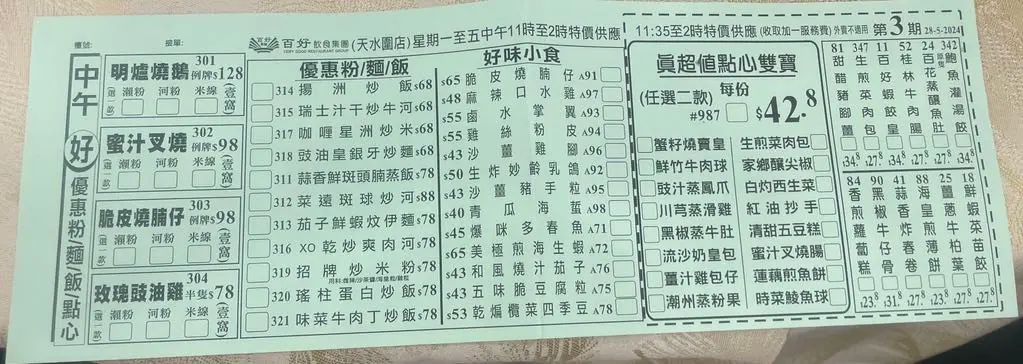 檯號:
接單:
百好 飲食集團 (天水圍店) 星期一至五中午11時至2時特價供應
VERY GOOD RESTAURANT GROUP
中午好優惠粉/麵/飯/點心
301
明爐燒鵝 例牌$128
選一款 瀨粉 河粉 米線 (壹窩)
302
蜜汁叉燒 例牌$98
選一款 瀨粉 河粉 米線 (壹窩)
303
脆皮燒腩仔 例牌$98
選一款 瀨粉 河粉 米線 (壹窩)
304
玫瑰豉油雞 半隻$78
選一款 瀨粉 河粉 米線 (壹窩)
優惠粉/麵/飯
314 揚洲炒飯 $68
315 瑞士汁干炒牛河 $68
317 咖喱星洲炒米 $68
318 豉油皇銀牙炒麵 $68
311 蒜香鮮斑頭腩蒸飯 $78
312 菜遠斑球炒河 $88
313 茄子鮮蝦炆伊麵 $78
316 XO乾炒爽肉河 $78
319 招牌炒米粉 $78
320 瑤柱蛋白炒飯 $78
321 味菜牛肉丁炒飯 $78
好味小食
$65 脆皮燒腩仔 A91
$48 麻辣口水雞 A97
$55 鹵水掌翼 A93
$55 雞絲粉皮 A94
$43 沙薑雞腳 A96
$50 生炸妙齡乳鴿 A92
$43 沙薑豬手粒 A95
$40 青瓜海蜇 A98
$45 爆咪多春魚 A71
$65 美極煎海生蝦 A72
$43 和風燒汁茄子 A76
$43 五味脆豆腐粒 A75
$53 乾煸欖菜四季豆 A78
11:35至2時特價供應 (收取加一服務費) 外賣不適用 第3期 28-5-2024
真超值點心雙寶
(任選二款) 每份 $42.8
#987
蟹籽燒賣皇 生煎菜肉包
鮮竹牛肉球 家鄉釀尖椒
豉汁蒸鳳爪 白灼西生菜
川芎蒸滑雞 紅油抄手
黑椒蒸牛肚 清甜五豆糕
流沙奶皇包 蜜汁叉燒腸
薑汁雞包仔 蓮藕煎魚餅
潮州蒸粉果 時菜鯪魚球
81 甜醋豬腳薑 $34.8
347 生煎菜肉包 $27.8
11 百好蝦餃皇 $34.8
52 桂林牛肉腸 $27.8
24 $34.8
342 鮑魚灌湯餃 $27.8
84 香煎蘿蔔糕 $23.8
90 黑椒牛仔骨 $31.8
41 蒜香炸春卷 $27.8
88 海皇煎薄餅 $31.8
25 薑蔥牛柏葉 $27.8
18 鮮蝦菜苗餃 $27.8